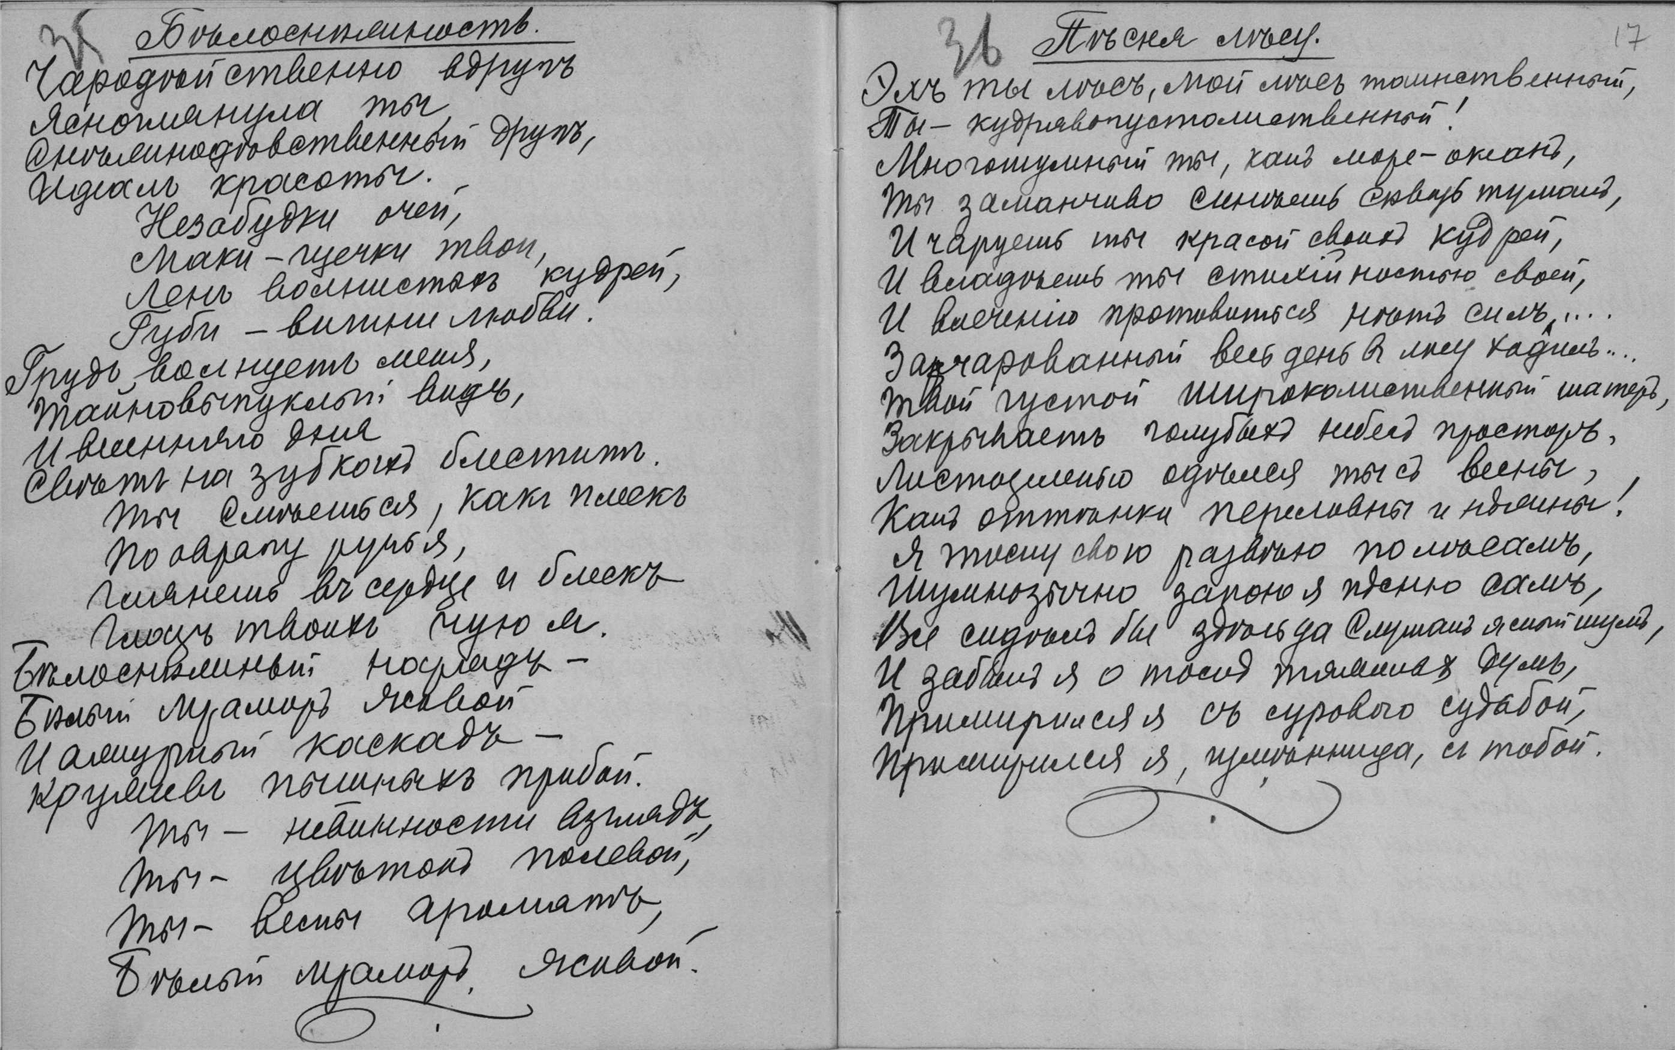 35
Бѣлоснѣжность.
Чародѣйственно вдругъ
Ясноглянула ты,
Снѣжнодѣвственный другъ,
Идеалъ красоты.
Незабудки очей,
Маки – щечки твои,
Ленъ волнистыхъ кудрей,
Губы – вишни любви.
Грудь волнуетъ меня,
Тайновыпуклый видъ,
И весенняго дня
Свѣтъ на зубкахъ блеститъ.
Ты смѣешься, какъ плескъ
По оврагу ручья,
Глянешь въ сердце и блескъ
Глазъ твоихъ чую я.
Бѣлоснѣжный нарядъ –
Бѣлый мраморъ живой
И ажурный каскадъ –
Кружевъ пышныхъ прибой.
Ты – невинности взглядъ,
Ты – цвѣтокъ полевой,
Ты – весны ароматъ,
Бѣлый мраморъ живой.
36
17
Пѣсня лѣсу.
Эхъ ты лѣсъ, мой лѣсъ таинственный,
Ты – кудрявогустолиственный!
Многошумный ты, какъ море-океанъ,
Ты заманчиво синѣешь сквозь туманъ,
И чаруешь ты красой своихъ кудрей,
И владѣешь ты стихійностью своей,
И влеченію противиться нѣтъ силъ....
Зачарованный весь день въ лѣсу ходилъ....
Твой густой широколиственный шатеръ,
Закрываетъ голубыхъ небесъ просторъ,
Листозеленью одѣлся ты съ весны,
Какъ оттѣнки переливны и нѣжны!
Я тоску свою развѣю по лѣсамъ,
Шумнозычно запою я пѣсню самъ,
Все сидѣлъ бы здѣсь да слушалъ ясный шумъ,
И забылъ я о тоскѣ тяжелыхъ думъ,
Примирился я съ суровою судьбой,
Примирился я, измѣнница, съ тобой.